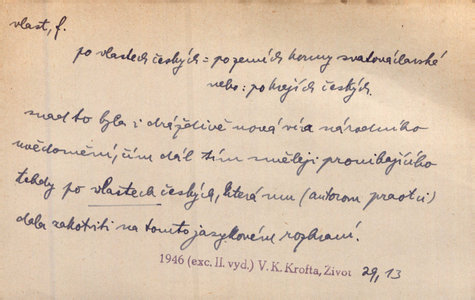 vlast, f.
po vlastech českých = po zemích koruny svatováclavské
nebo: po krajích českých.
snad to byla i dráždivě nová vína národního
uvědomění, čím dál tím směleji pronikajícího
tehdy po vlastech českých, která mu (autorovu praotci)
dala zakotviti na tomto jazykovém rozhraní.
1946 (exc. II. vyd.) V. K. Krofta, Život 29, 13